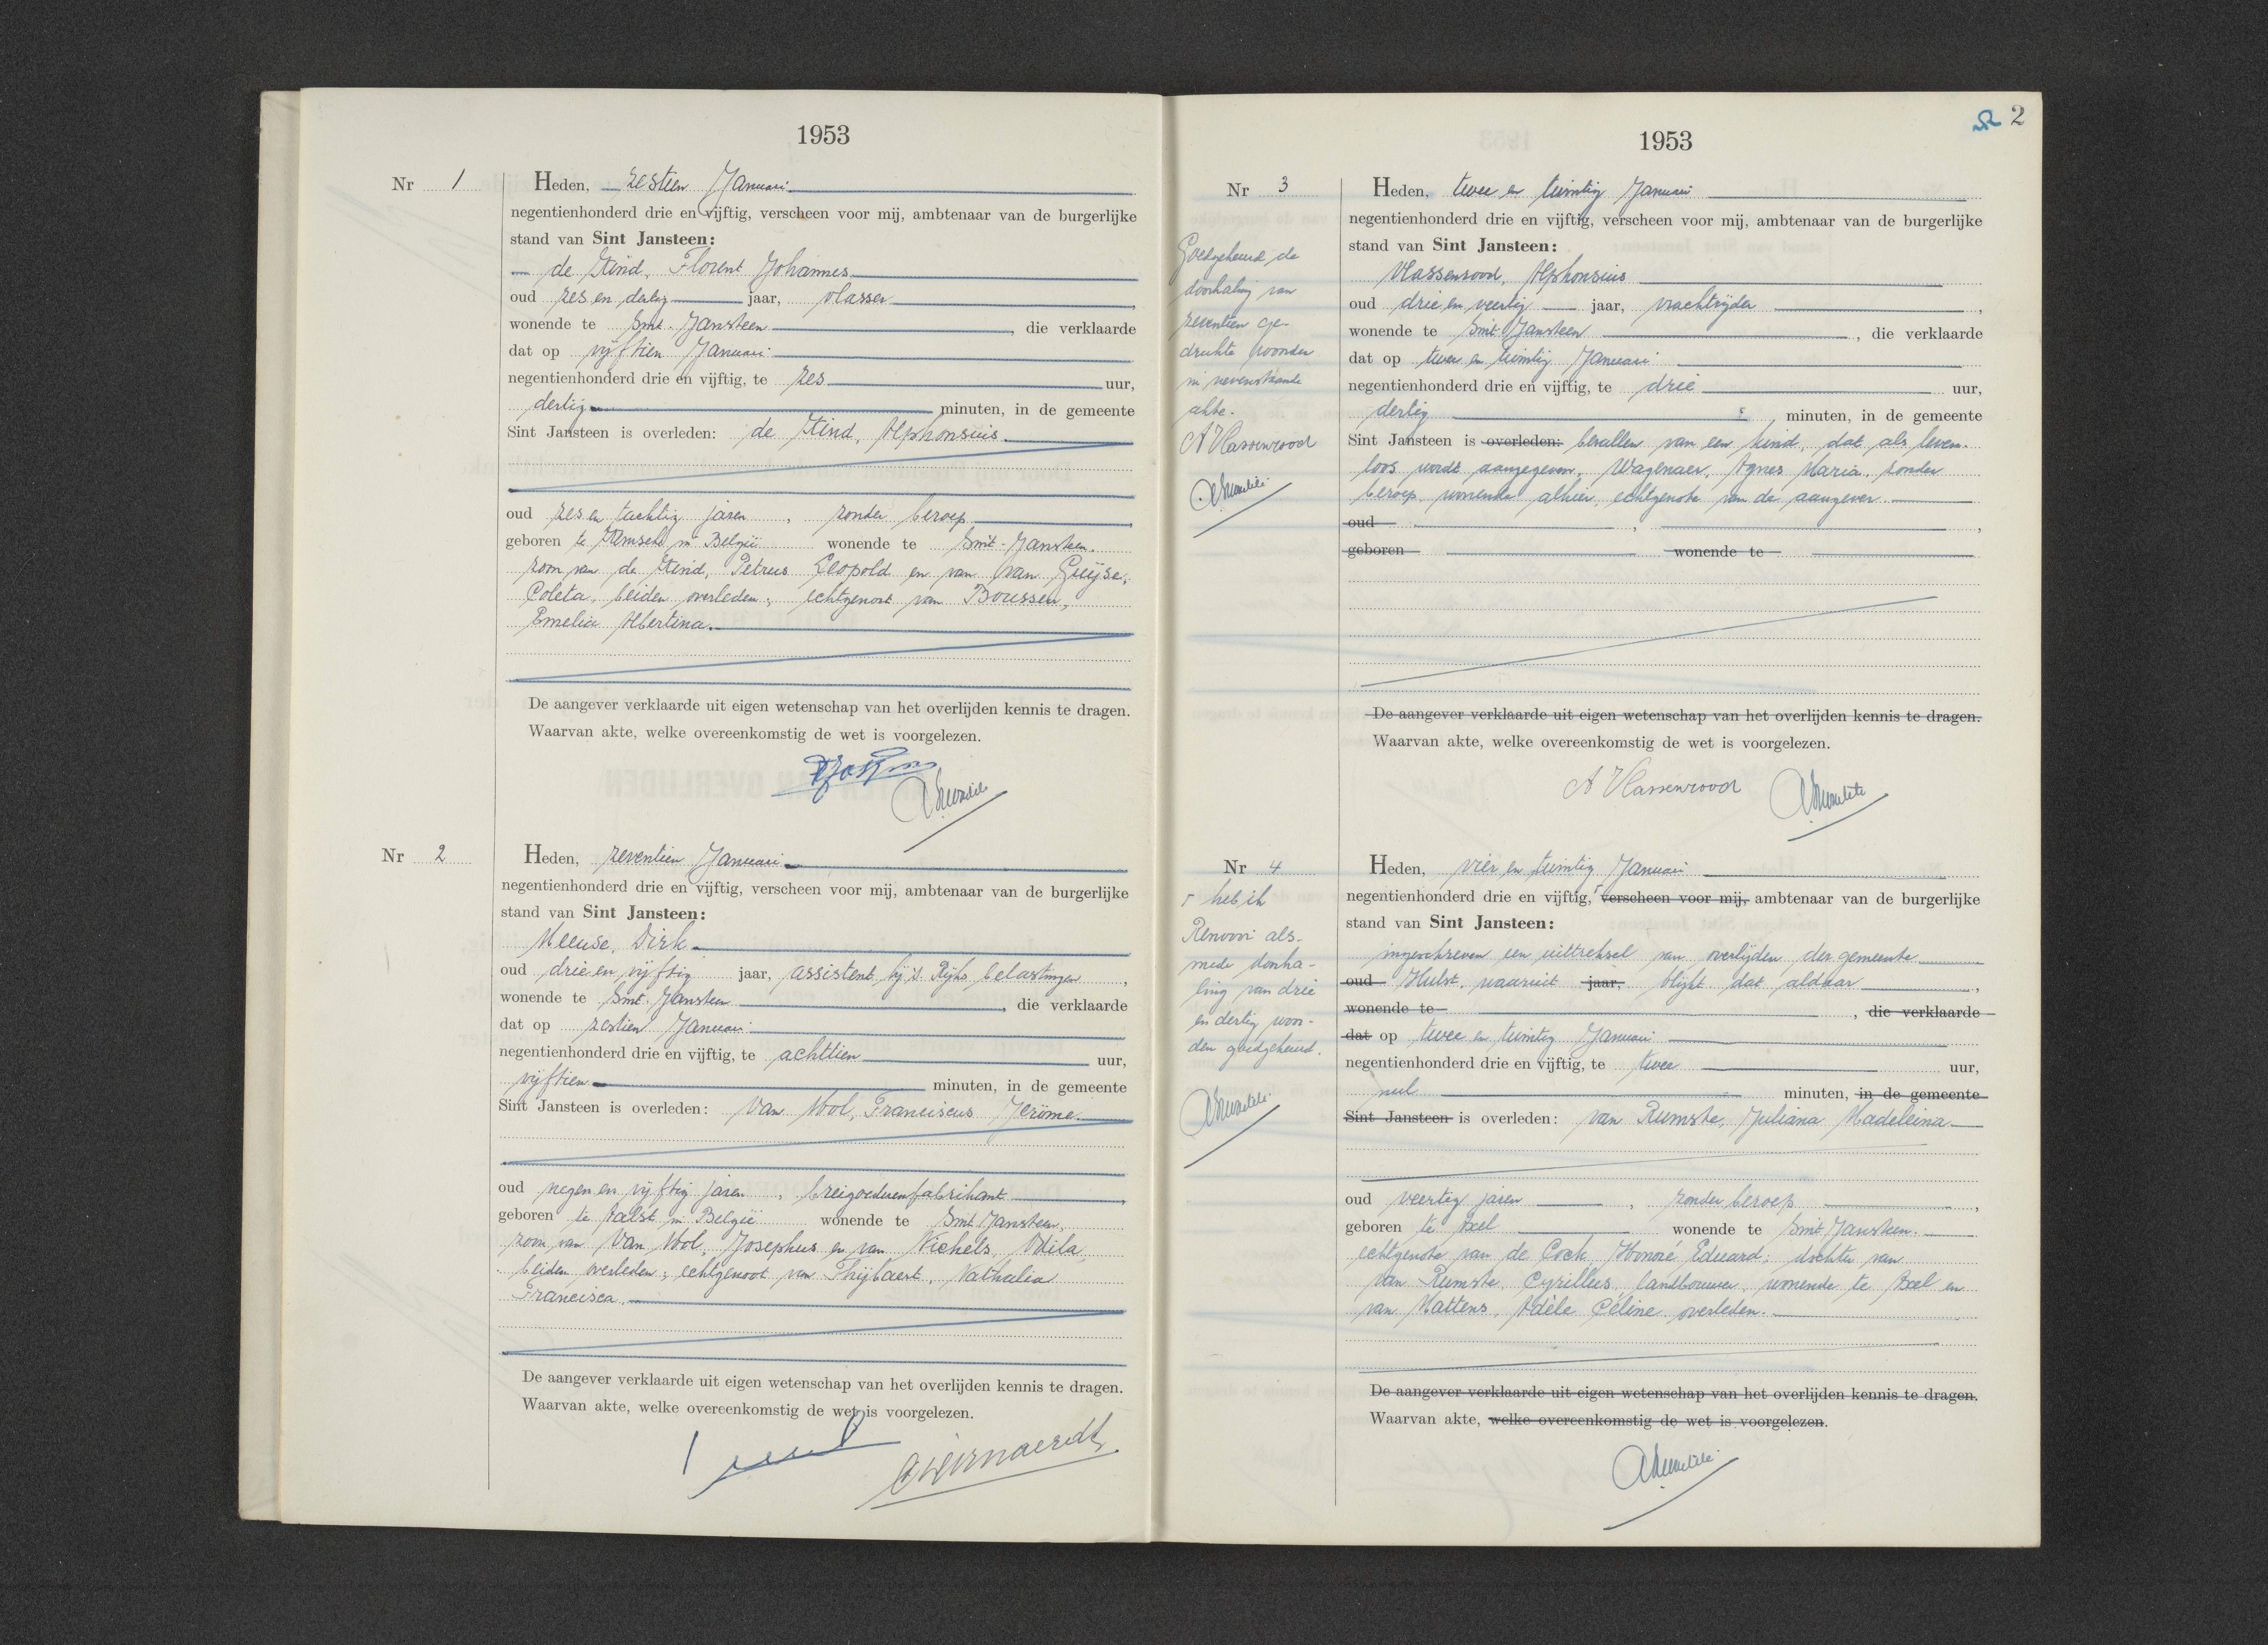 1953
Nr 1
Heden, zestien Januari
negentienhonderd drie en vijftig, verscheen voor mij, ambtenaar van de burgerlijke
stand van Sint Jansteen:
de Kind, Florent Johannes
oud zes en dertig jaar, vlasser,
wonende te Sint-Jansteen, die verklaarde
dat op vijftien Januari
negentienhonderd drie en vijftig, te zes uur,
dertig minuten, in de gemeente
Sint Jansteen is overleden: de Kind, Alphonsius.
oud zes en tachtig jaren, zonder beroep,
geboren te Kemseke in België wonende te Sint-Jansteen.
zoon van de Kind, Petrus Leopold en van van Guijse,
Coleta, beiden overleden; echtgenoot van Boussen,
Emelia Albertina.
De aangever verklaarde uit eigen wetenschap van het overlijden kennis te dragen.
Waarvan akte, welke overeenkomstig de wet is voorgelezen.
Nr 2
Heden, zeventien Januari
negentienhonderd drie en vijftig, verscheen voor mij, ambtenaar van de burgerlijke
stand van Sint Jansteen:
Meeuse, Dirk
oud drie en vijftig jaar, assistent bij 's Rijks belastingen,
wonende te Sint-Jansteen, die verklaarde
dat op zestien Januari
negentienhonderd drie en vijftig, te achttien uur,
vijftien minuten, in de gemeente
Sint Jansteen is overleden: Van Mol, Franciscus Jerôme.
oud negen en vijftig jaren, breigoederenfabrikant
geboren te Aalst in België wonende te Sint Jansteen,
zoon van Van Mol, Josephus en van Michels, Odila,
beiden overleden; echtgenoot van Thijbaert, Nathalia
Francisca.
De aangever verklaarde uit eigen wetenschap van het overlijden kennis te dragen.
Waarvan akte, welke overeenkomstig de wet is voorgelezen.
2 2
1953
Nr 3
Goedgekeurd de
doorhaling van
zeventien ge-
drukte woorden
in nevenstaande
akte.
A Vlassenrood
Heden, twee en twintig Januari
negentienhonderd drie en vijftig, verscheen voor mij, ambtenaar van de burgerlijke
stand van Sint Jansteen:
Vlassenrood, Alphonsius
oud drie en veertig jaar, vrachtrijder,
wonende te Sint-Jansteen, die verklaarde
dat op twee en twintig Januari
negentienhonderd drie en vijftig, te drie uur,
dertig minuten, in de gemeente
Sint Jansteen is overleden: bevallen van een kind, dat als leven-
loos wordt aangegeven, Wagenaer, Agnes Maria, zonder
beroep, wonende alhier, echtgenote van de aangever
oud , ,
geboren wonende te
De aangever verklaarde uit eigen wetenschap van het overlijden kennis te dragen.
Waarvan akte, welke overeenkomstig de wet is voorgelezen.
A Vlassenrood
Nr 4
heb ik
Renvooi als-
mede doorha-
ling van drie
en dertig woor-
den goedgekeurd.
Heden, vier en twintig Januari
negentienhonderd drie en vijftig, verscheen voor mij, ambtenaar van de burgerlijke
stand van Sint Jansteen:
ingeschreven een uittreksel van overlijden der gemeente
oud Hulst, waaruit jaar, blijkt dat aldaar,
wonende te , die verklaarde
dat op twee en twintig Januari
negentienhonderd drie en vijftig, te twee uur,
nul minuten, in de gemeente
Sint Jansteen is overleden: van Rumste, Juliana Madeleina
oud veertig jaren, zonder beroep,
geboren te Axel wonende te Sint Jansteen.
echtgenote van de Cock, Honoré Eduard; dochter van
van Rumste, Cyrillus, landbouwer, wonende te Axel en
van Mattens, Adèle Céline overleden.
De aangever verklaarde uit eigen wetenschap van het overlijden kennis te dragen.
Waarvan akte, welke overeenkomstig de wet is voorgelezen.